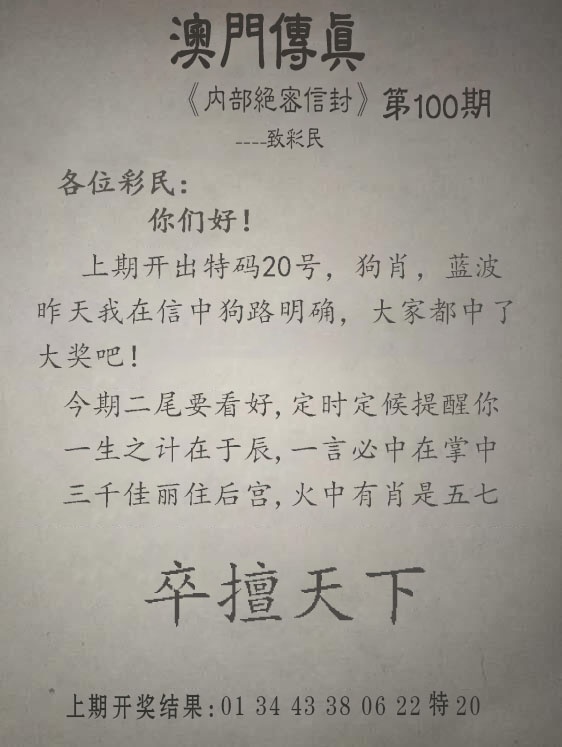 澳門傳真
《内部絕密信封》第100期
----致彩民
各位彩民:
你们好!
上期开出特码20号，狗肖，蓝波
昨天我在信中狗路明确，大家都中了
大奖吧!
今期二尾要看好,定时定候提醒你
一生之计在于辰,一言必中在掌中
三千佳丽住后宫,火中有肖是五七
卒擅天下
上期开奖结果:01 34 43 38 06 22 特 20